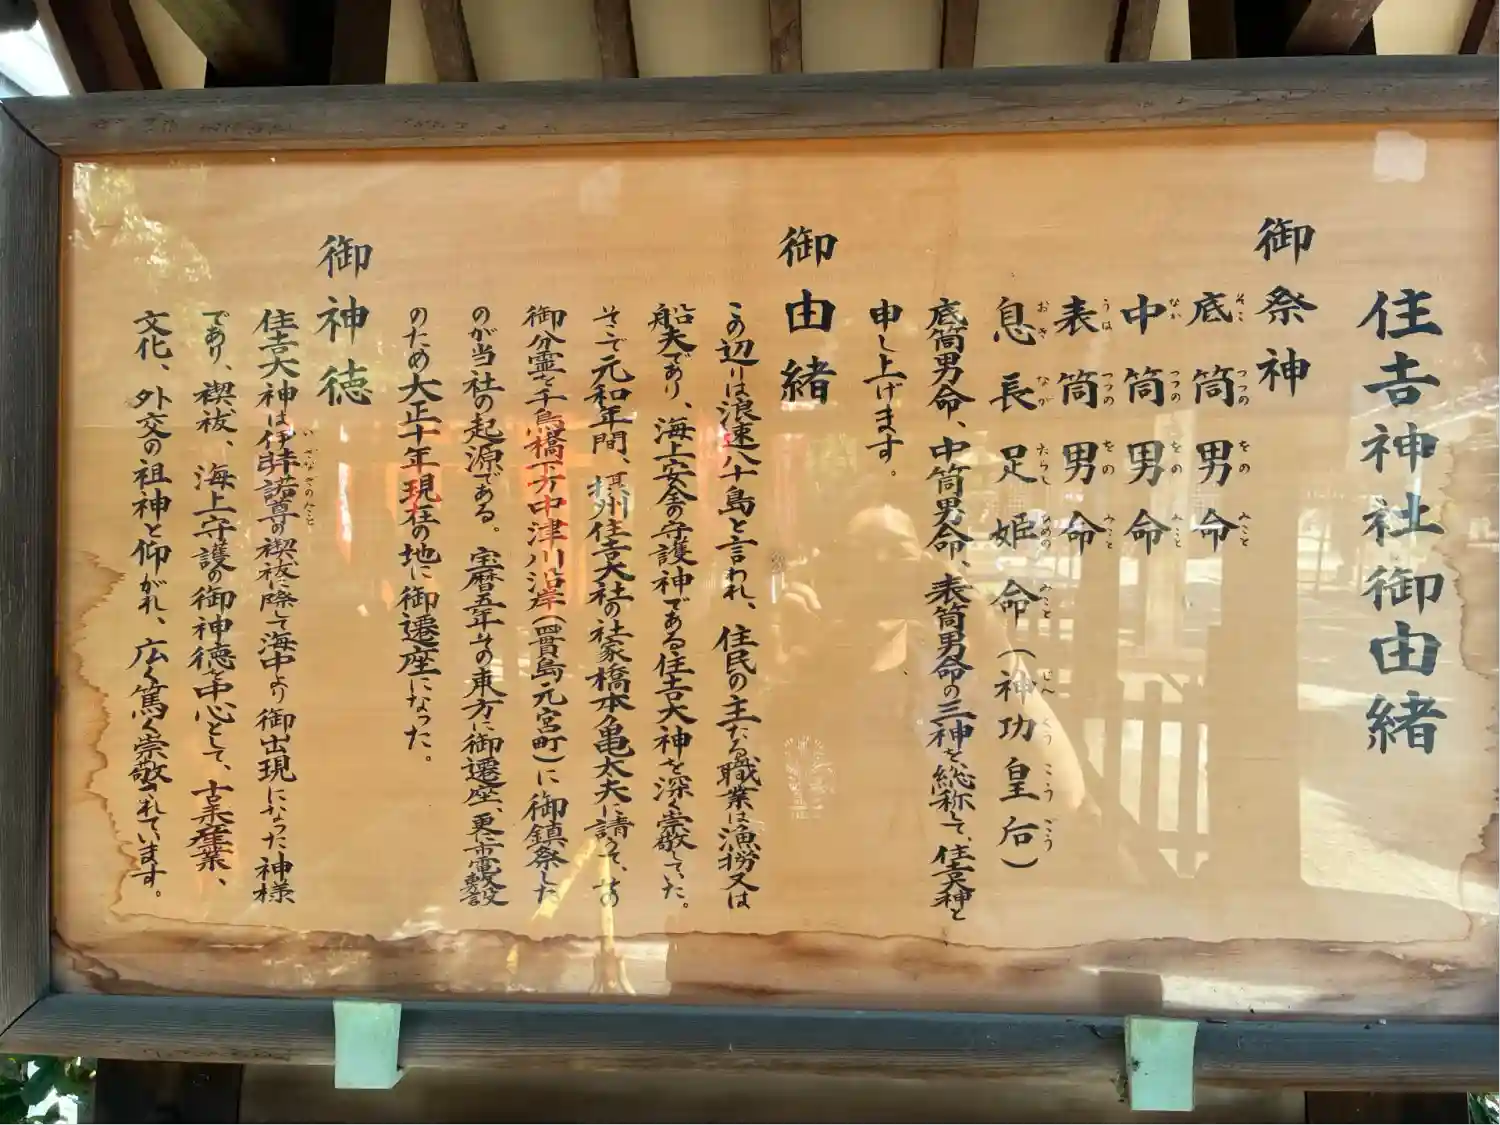 住吉神社御由緒
御祭神
底筒男命
そこつつのをのみこと
中筒男命
なかつつのをのみこと
表筒男命
うはつつのをのみこと
息長足姫命（神功皇后）
おきながたらしひめのみこと じんぐうこうごう
底筒男命、中筒男命、表筒男命の三神を総称して、住吉大神と
申し上げます。
御由緒
この辺りは浪速八十島と言われ、住民の主たる職業は漁撈又は
船夫であり、海上安全の守護神である住吉大神を深く崇敬していた。
そこで元和年間、摂州住吉大社の社家橋本亀太夫に請うて、その
御分霊を千鳥橋下方中津川沿岸（四貫島元宮町）に御鎮祭した
のが当社の起源である。宝暦五年その東方に御遷座、更に市電敷設
のため大正十年現在の地に御遷座になった。
御神徳
住吉大神は伊弉諾尊の禊祓に際して海中より御出現になった神様
いざなぎのみこと
であり、禊祓、海上守護の御神徳を中心として、産業、
文化、外交の祖神と仰がれ、広く篤く崇敬されています。